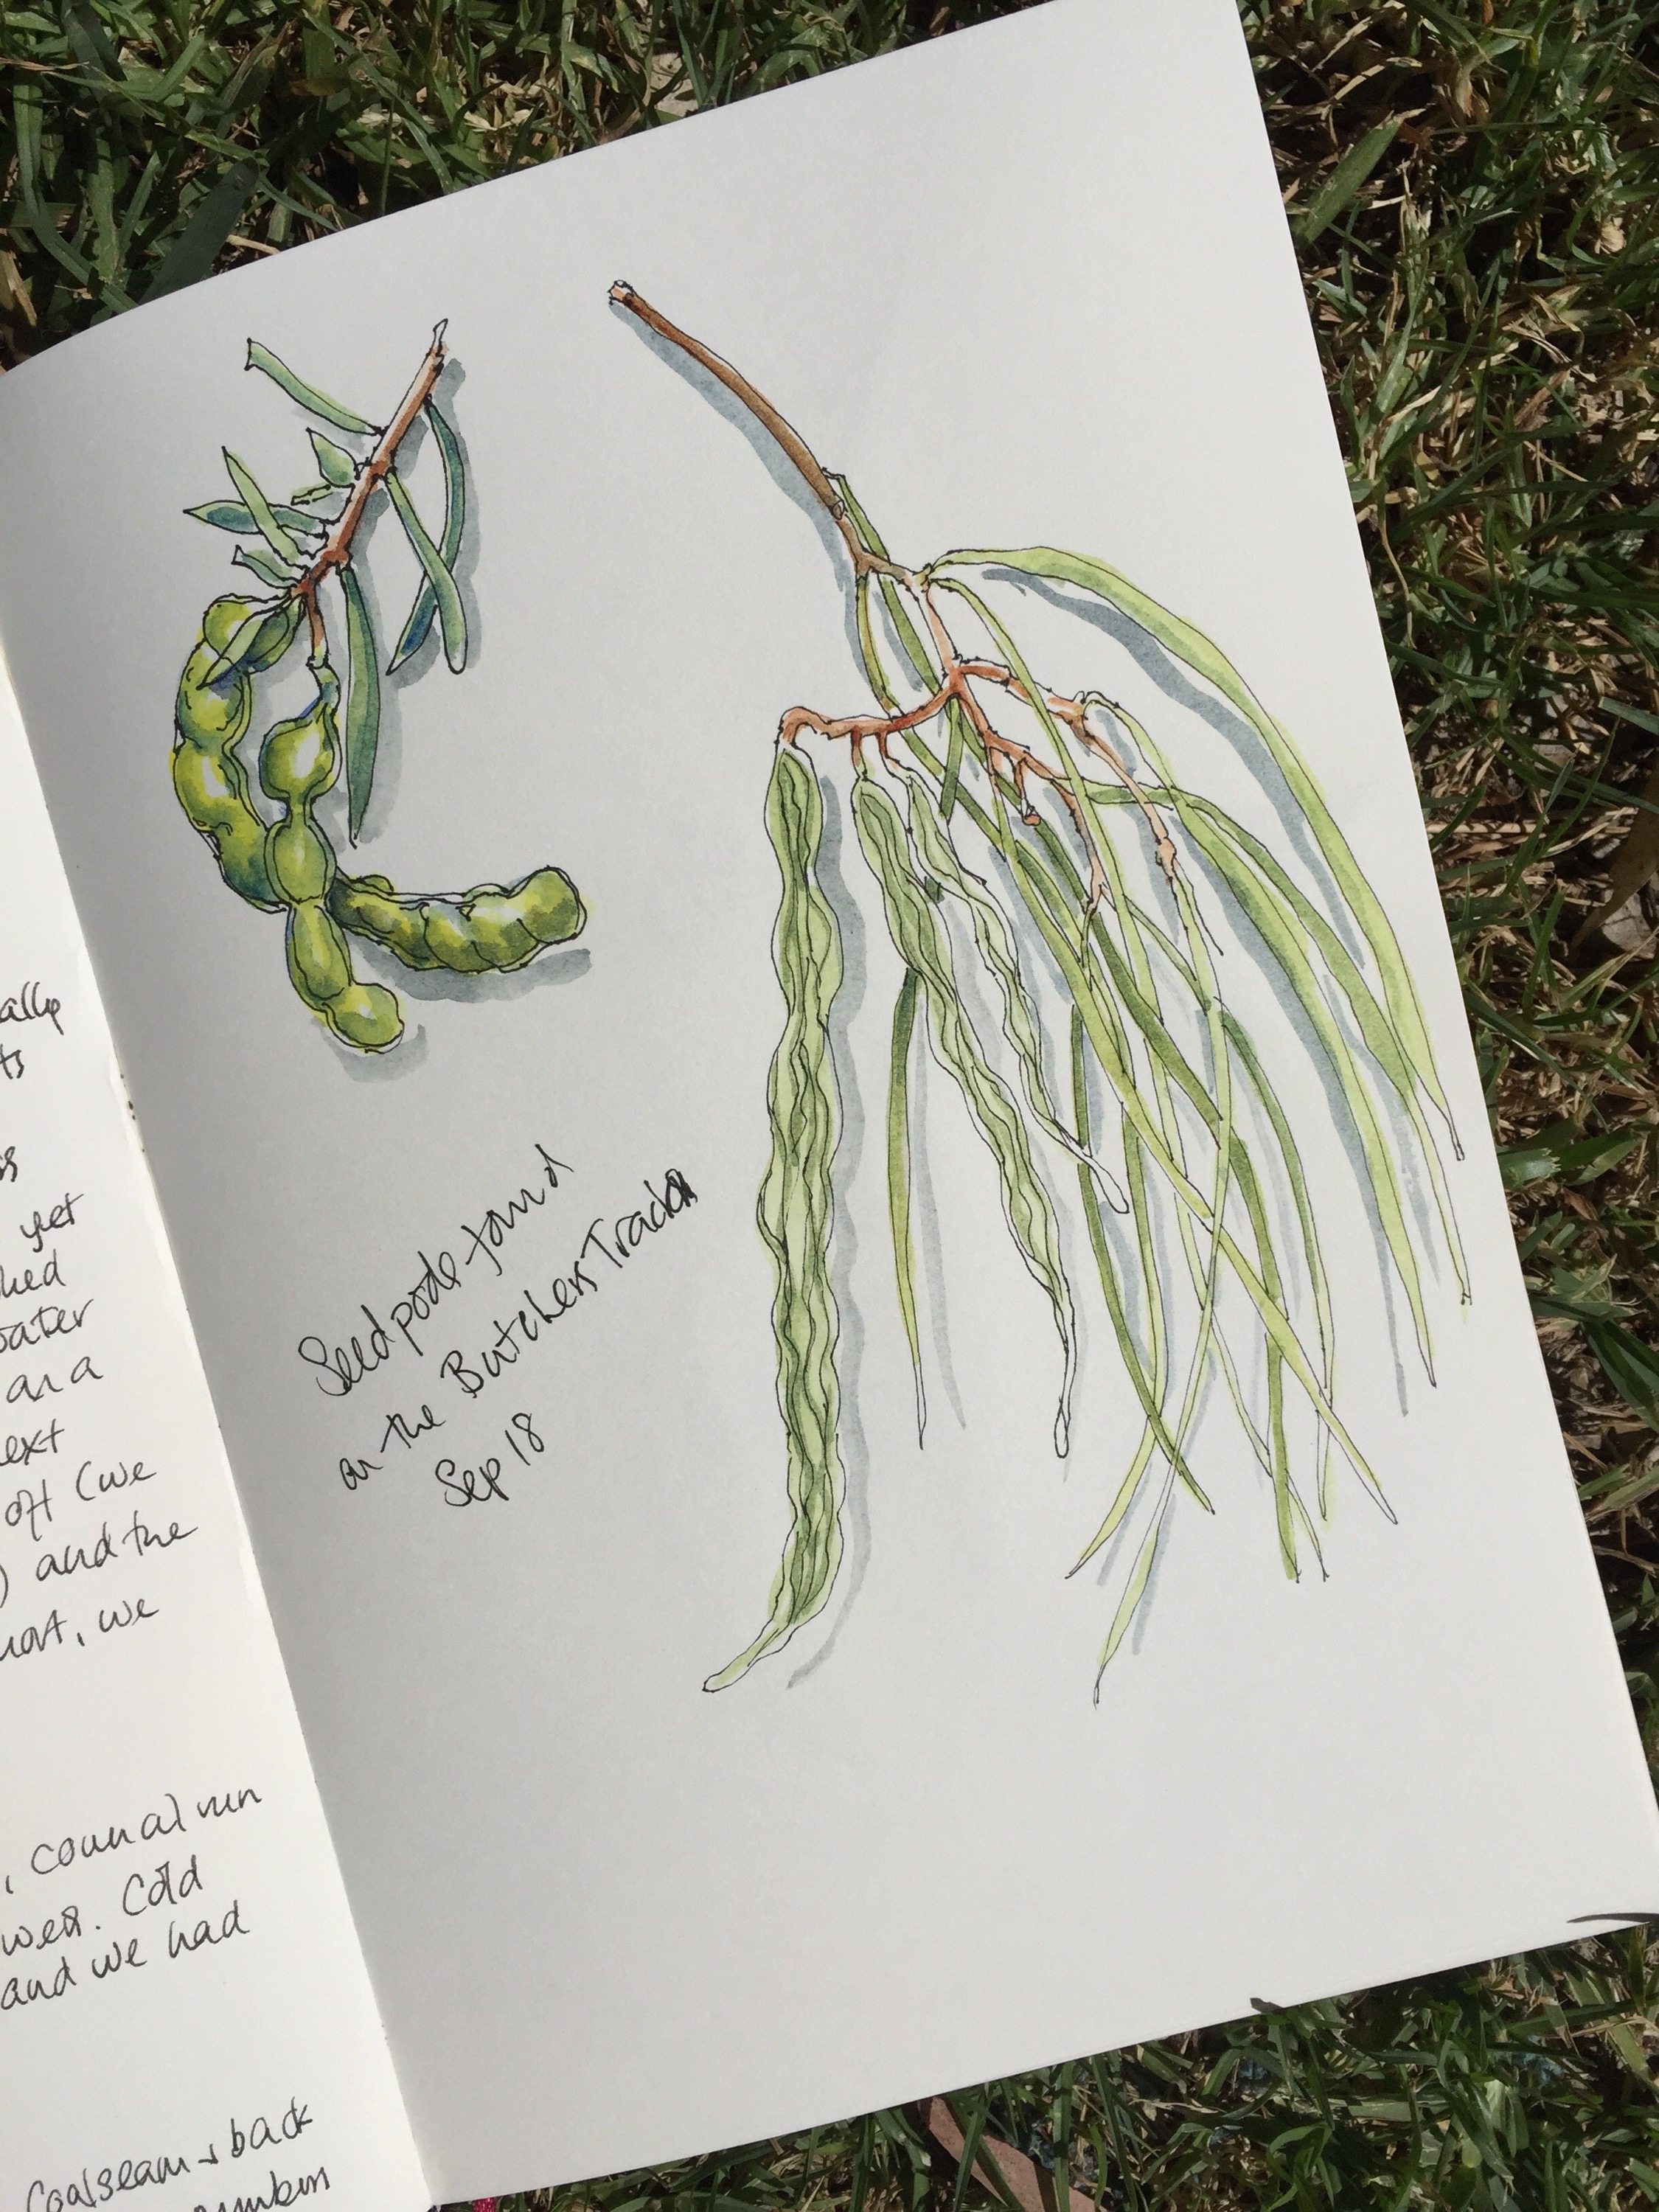 ally
ts
yet
ked
water
on a
ext
off (we
) and the
we
, council run
west. Cold
and we had
Coalseam + back
Seed pods found
on the Butchers Track
Sep 18